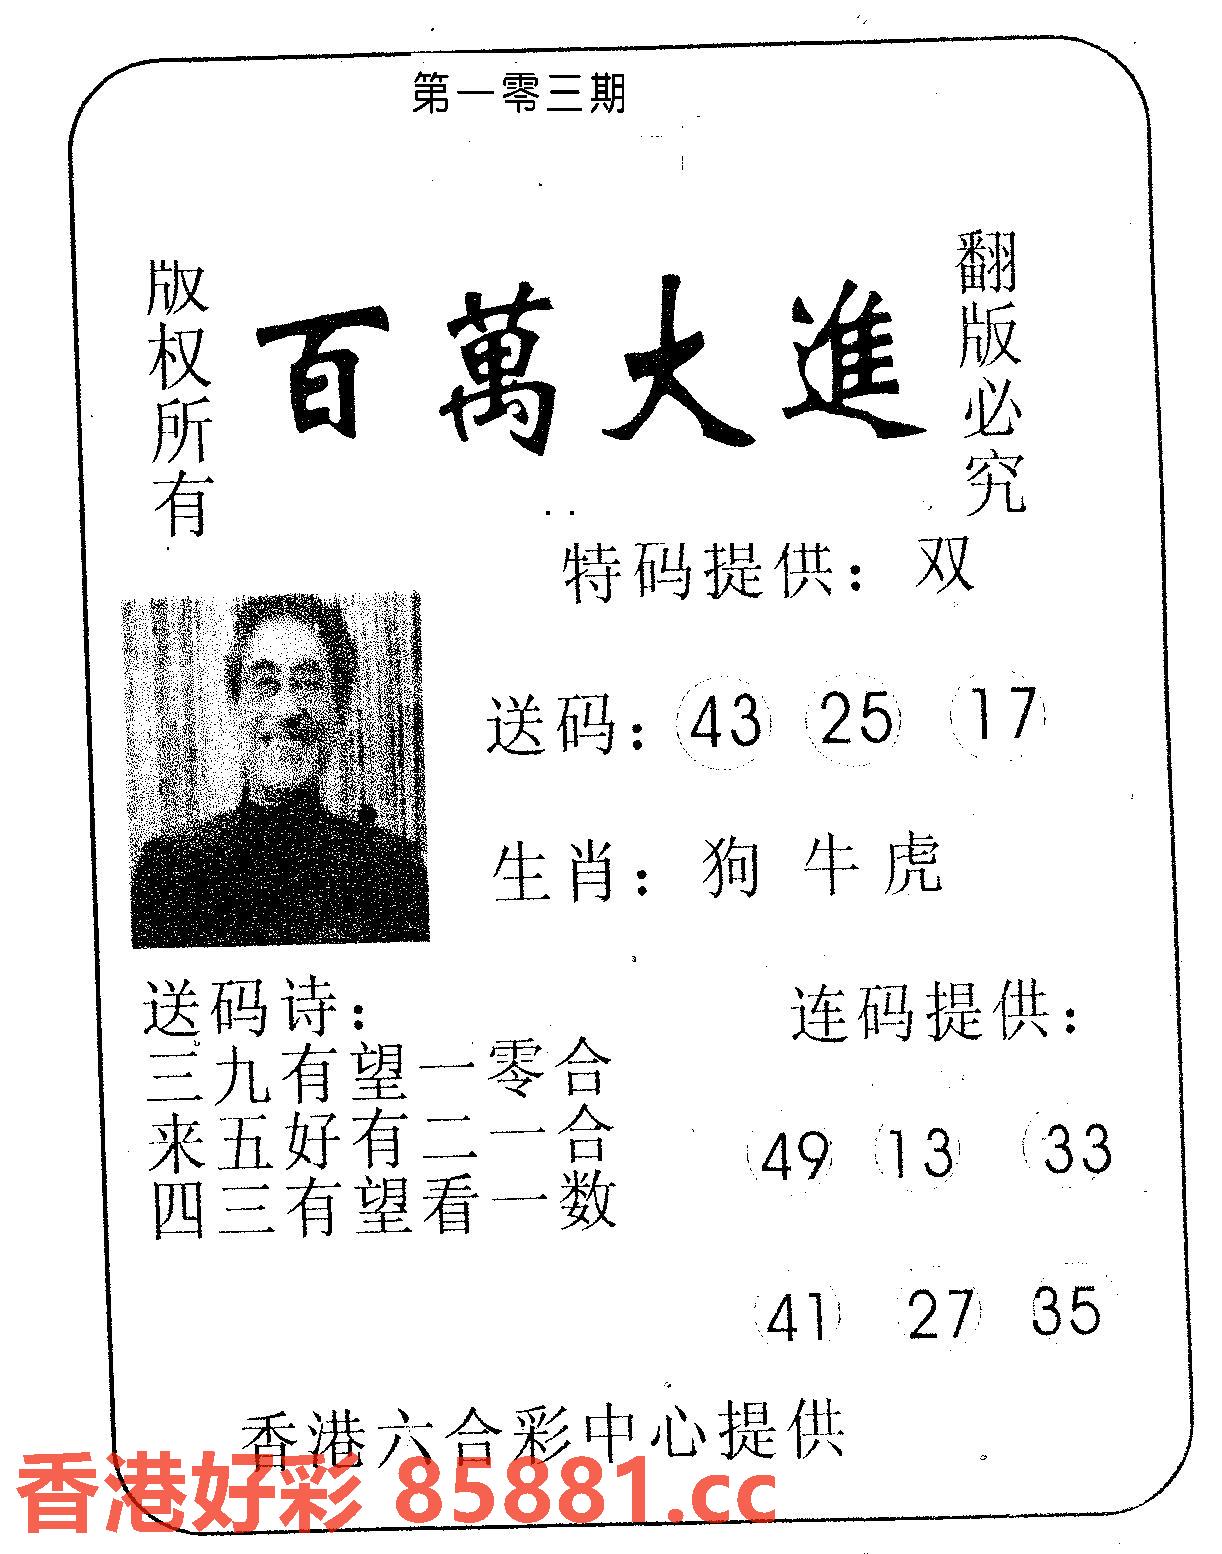 第一零三期
版权所有
百萬大進
翻版必究
特码提供：双
送码：43 25 17
生肖：狗 牛 虎
送码诗：
三九有望一零合
来五好有二一合
四三有望看一数
连码提供：
49 13 33
41 27 35
香港六合彩中心提供
香港好彩 85881.cc